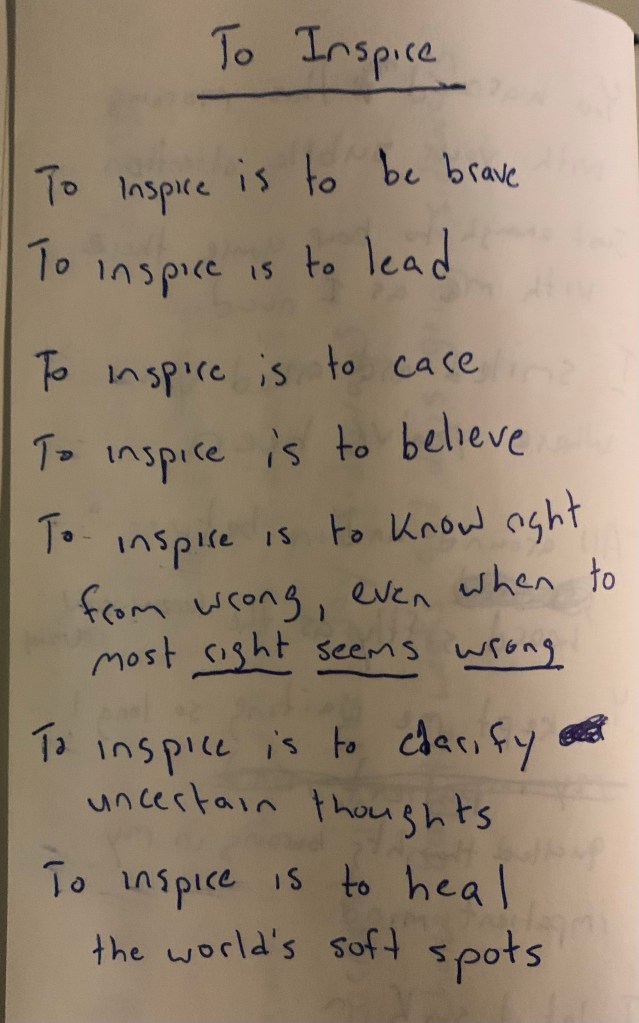 To Inspire
To inspire is to be brave
To inspire is to lead
To inspire is to care
To inspire is to believe
To inspire is to know right
from wrong, even when to
most right seems wrong
To inspire is to clarify
uncertain thoughts
To inspire is to heal
the world's soft spots